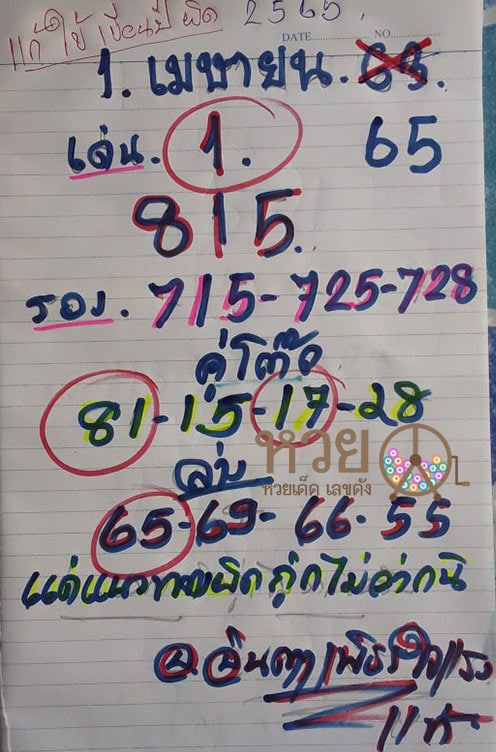 แก้ไข เขียนปี ผิด 2565
DATE NO.
1. เมษายน. 63.
เด่น. 1. 65
815.
รอง. 715-725-728
คู่โต๊ด
81-15-17-28
หวย
หวยเด็ด เลขดัง
65-69-66-55
ผิด ถูกไม่ว่ากัน